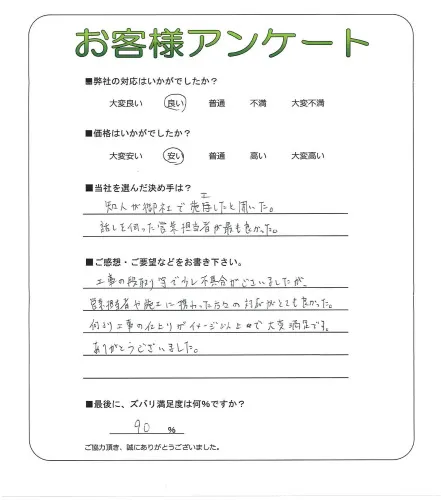 お客様アンケート
■弊社の対応はいかがでしたか？
大変良い 良い 普通 不満 大変不満
■価格はいかがでしたか？
大変安い 安い 普通 高い 大変高い
■当社を選んだ決め手は？
知人が御社で施工したと聞いた。
話しを伺った営業担当者が最も良かった。
■ご感想・ご要望などをお書き下さい。
工事の段取り等で少し不具合がございましたが、
営業担当者や施工に携わった方々の対応がとても良かった。
何より工事の仕上りがイメージ以上で大変満足です。
ありがとうございました。
■最後に、ズバリ満足度は何%ですか？
90 %
ご協力頂き、誠にありがとうございました。